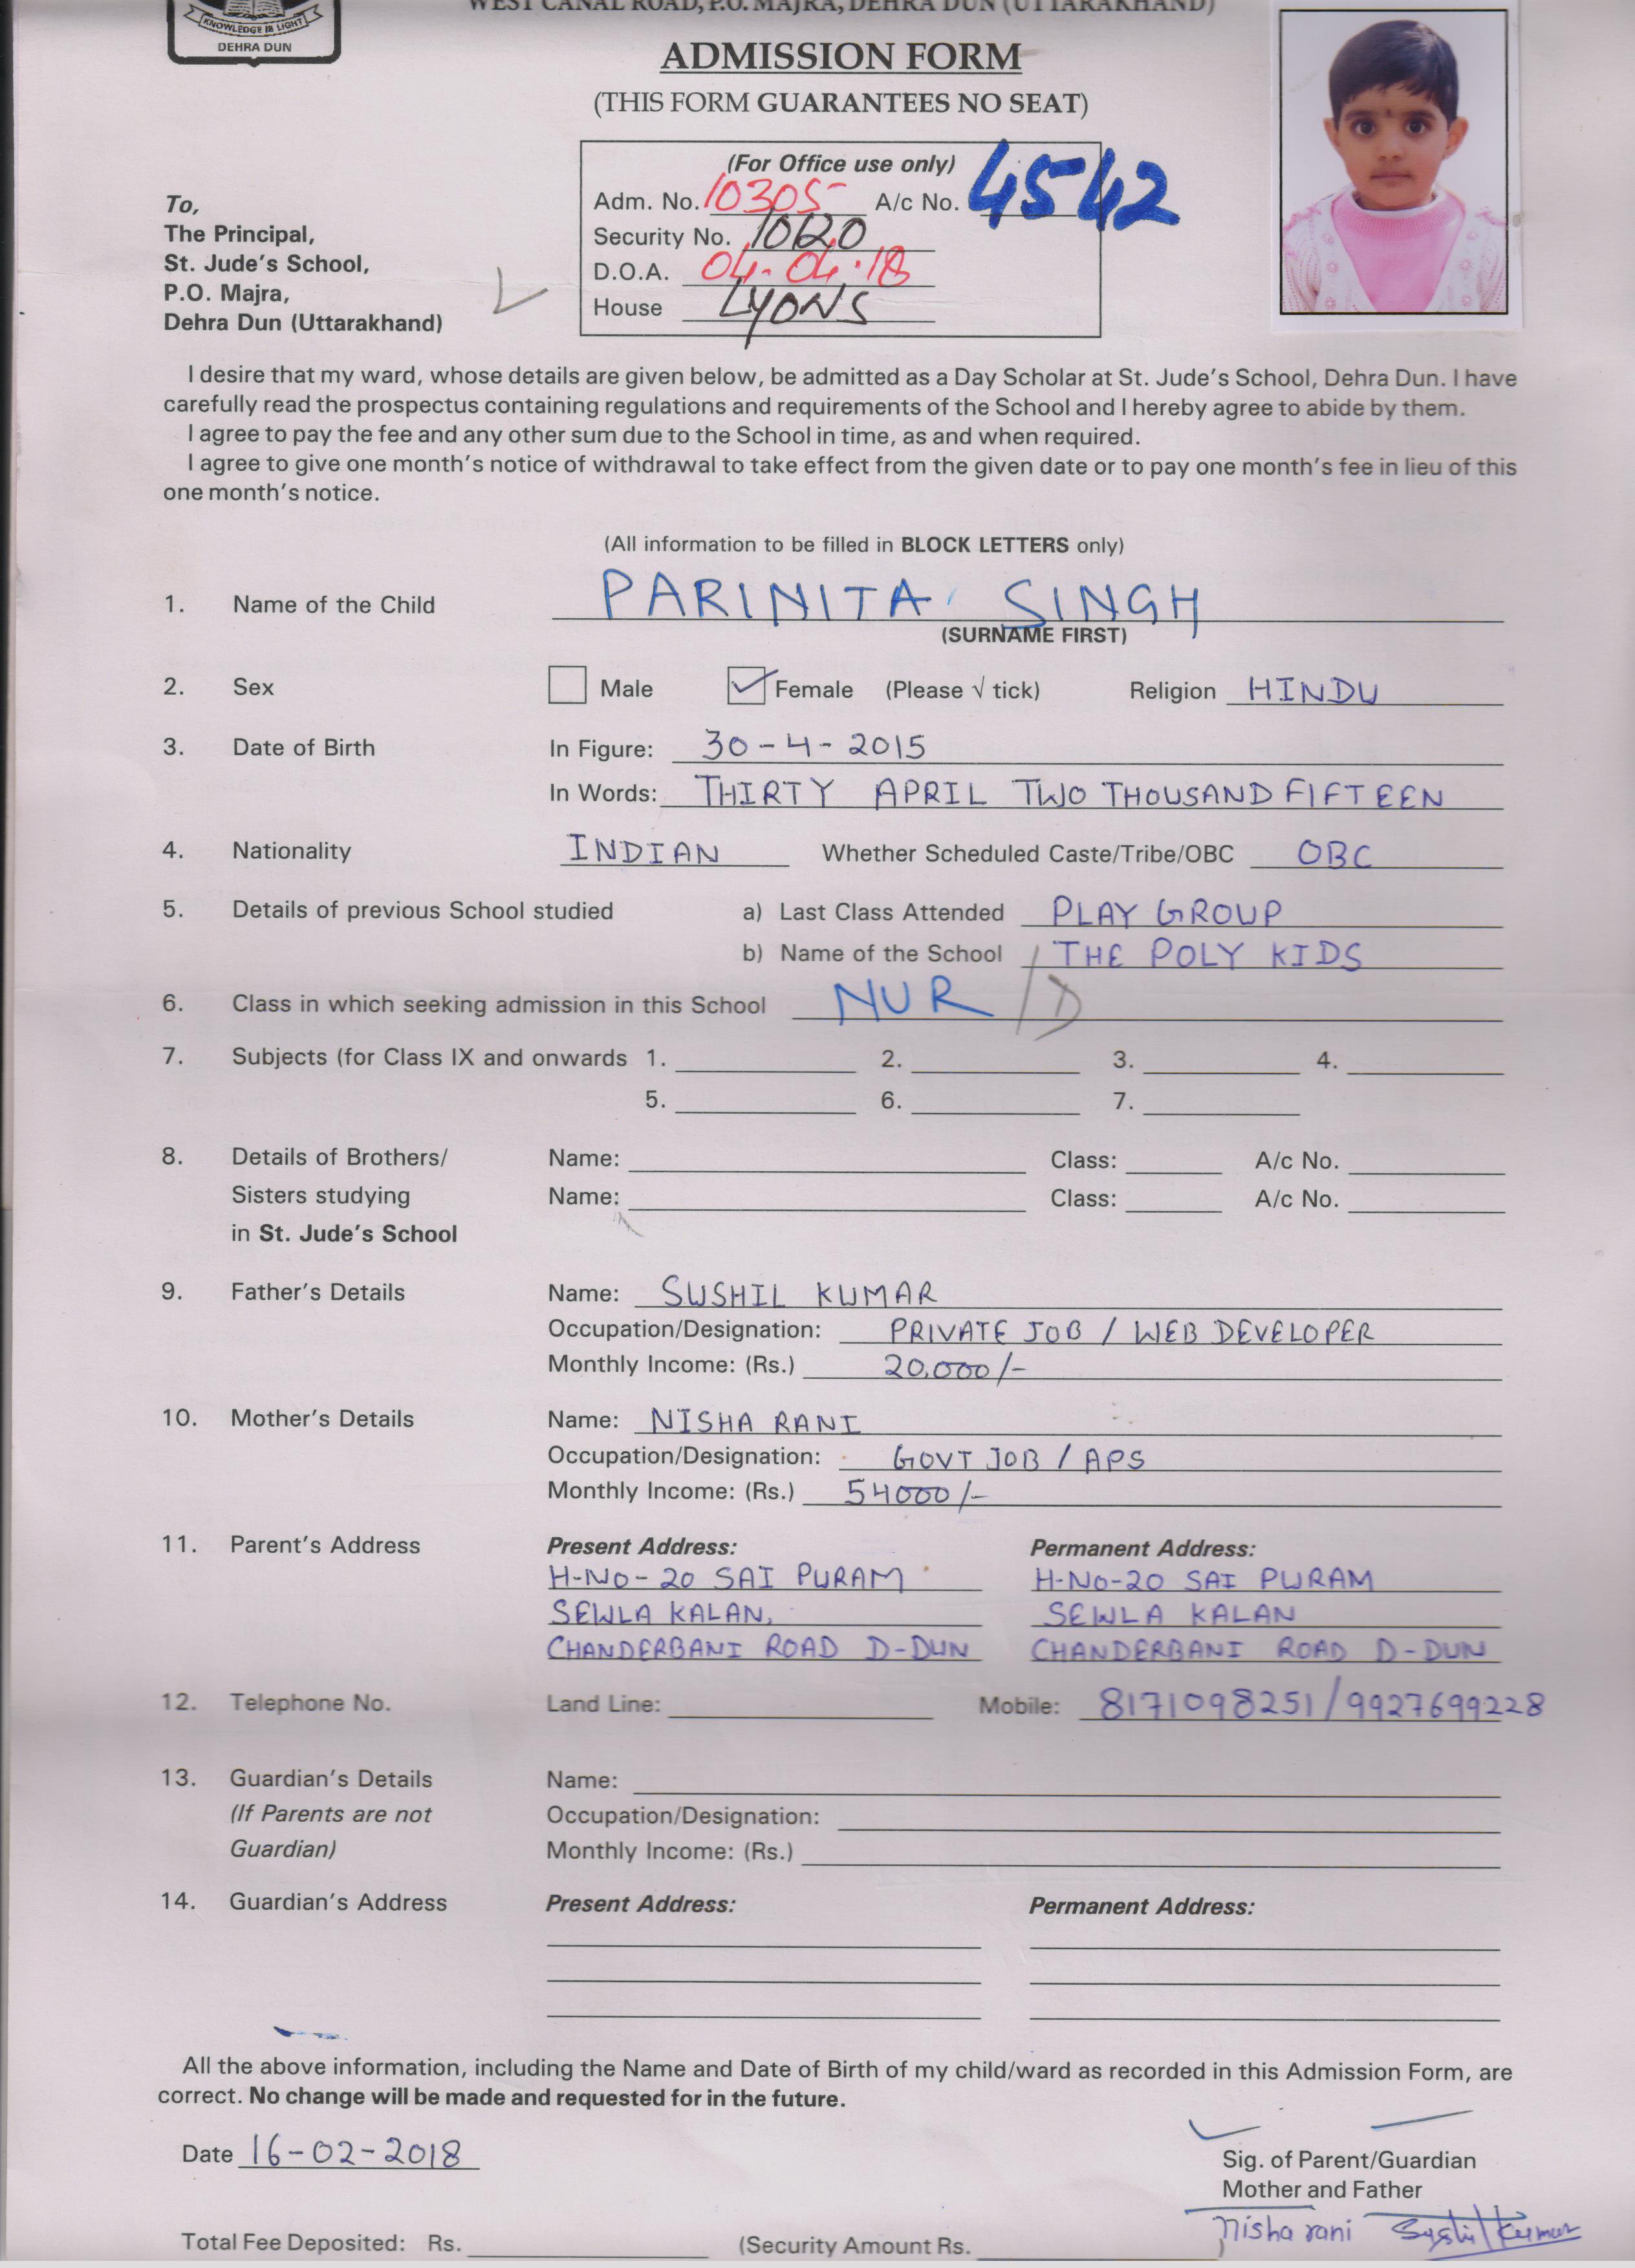 WEST CANAL ROAD, P.O. MAJRA, DEHRA DUN (UTTARAKHAND)
KNOWLEDGE IS LIGHT
DEHRA DUN
ADMISSION FORM
(THIS FORM GUARANTEES NO SEAT)
(For Office use only)
Adm. No. 10305 A/c No. 4542
Security No. 10120
D.O.A. 04.04.18
House LYONS
To,
The Principal,
St. Jude's School,
P.O. Majra,
Dehra Dun (Uttarakhand)
I desire that my ward, whose details are given below, be admitted as a Day Scholar at St. Jude's School, Dehra Dun. I have
carefully read the prospectus containing regulations and requirements of the School and I hereby agree to abide by them.
I agree to pay the fee and any other sum due to the School in time, as and when required.
I agree to give one month's notice of withdrawal to take effect from the given date or to pay one month's fee in lieu of this
one month's notice.
(All information to be filled in BLOCK LETTERS only)
1. Name of the Child PARINITA SINGH
(SURNAME FIRST)
2. Sex Male Female (Please √ tick) Religion HINDU
3. Date of Birth In Figure: 30-4-2015
In Words: THIRTY APRIL TWO THOUSAND FIFTEEN
4. Nationality INDIAN Whether Scheduled Caste/Tribe/OBC OBC
5. Details of previous School studied a) Last Class Attended PLAY GROUP
b) Name of the School THE POLY KIDS
6. Class in which seeking admission in this School NUR / D
7. Subjects (for Class IX and onwards 1. 2. 3. 4.
5. 6. 7.
8. Details of Brothers/ Name: Class: A/c No.
Sisters studying Name: Class: A/c No.
in St. Jude's School
9. Father's Details Name: SUSHIL KUMAR
Occupation/Designation: PRIVATE JOB / WEB DEVELOPER
Monthly Income: (Rs.) 20,000/-
10. Mother's Details Name: NISHA RANI
Occupation/Designation: GOVT JOB / APS
Monthly Income: (Rs.) 54000/-
11. Parent's Address Present Address: Permanent Address:
H-NO-20 SAI PURAM H-NO-20 SAI PURAM
SEWLA KALAN, SEWLA KALAN
CHANDERBANI ROAD D-DUN CHANDERBANI ROAD D-DUN
12. Telephone No. Land Line: Mobile: 8171098251/9927699228
13. Guardian's Details Name:
(If Parents are not Occupation/Designation:
Guardian) Monthly Income: (Rs.)
14. Guardian's Address Present Address: Permanent Address:
All the above information, including the Name and Date of Birth of my child/ward as recorded in this Admission Form, are
correct. No change will be made and requested for in the future.
Date 16-02-2018
Sig. of Parent/Guardian
Mother and Father
Nisha rani Sushil Kumar
Total Fee Deposited: Rs. (Security Amount Rs.